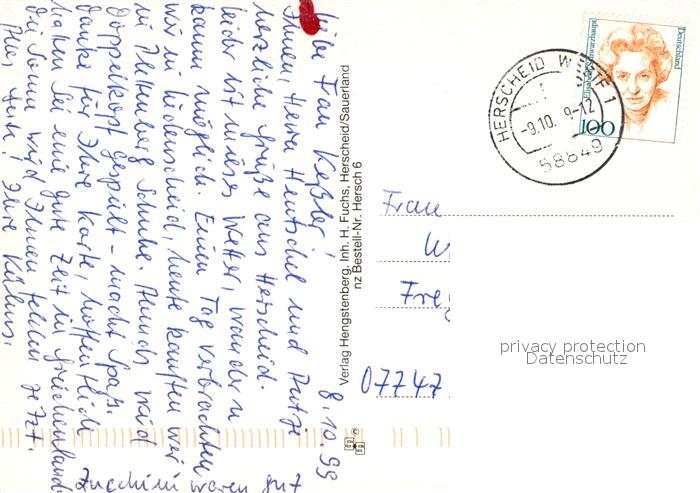 8.10.99
Liebe Frau Keßler!
Ihnen, Herrn Hentschel und Putzi
herzliche Grüße aus Herscheid.
Leider ist mieses Wetter, wandern
kaum möglich. Einen Tag verbrachten
wir in Lüdenscheid, heute kauften wir
in Plettenberg Schuhe. Abends wird
Doppelkopf gespielt - macht Spaß.
Danke für Ihre Karte, hoffentlich
haben Sie eine gute Zeit in Griechenland
die Sonne wird Ihnen fehlen jetzt.
Alles Gute! Ihre Kühns.
Zucchini waren gut
Verlag Hengstenberg, Inh. H. Fuchs, Herscheid/Sauerland
nz Bestell-Nr. Hersch 6
Deutschland
Elisabeth Schwarzhaupt
100
HERSCHEID 1
-9.10.
58849
Frau
07747
privacy protection
Datenschutz